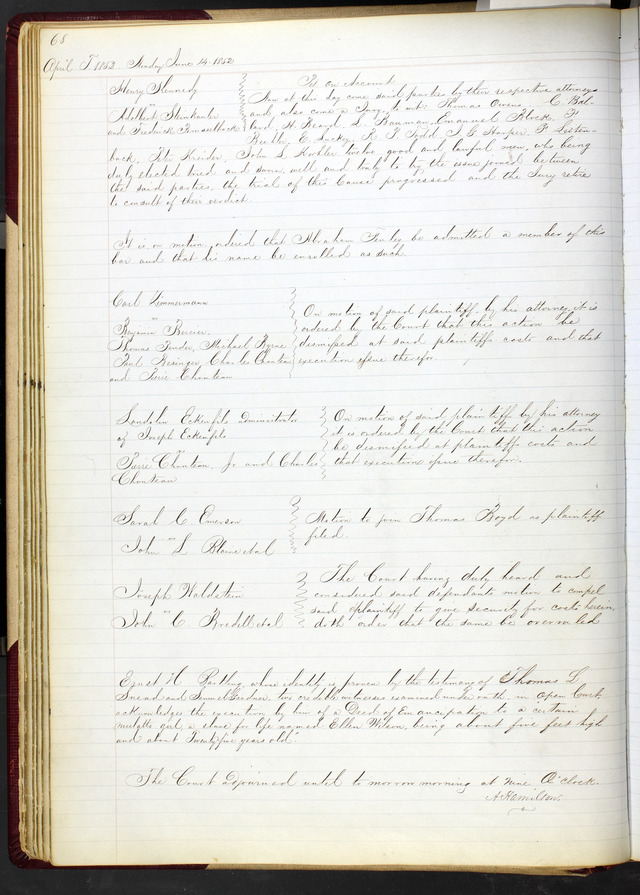 68
April T. 1852 Monday June 14 1852
Henry Kennedy
vs
Adelbert Steinkauler
and Frederick
Pet on Account
Now at this day come said parties by their respective attorneys
and also come a Jury, to wit: Thomas Owens, C. Bal-
land, H. S. Bauman, Emanuel Block, P.
E. R. S. Todd, T. G. Harper, P.
back, John S. Kochler twelve good and lawful men, who being
duly elected tried and sworn, well and truly to try the issue joined between
the said parties, the trial of this Cause progressed and the Jury retire
to consult of their verdict.
It is on motion ordered that Abraham be admitted a member of this
bar and that his name be enrolled as such.
Carl Zimmermann
vs
Benjamin
Thomas Michael Byrne
Paul Charles Chouteau
and Pierre Chouteau
On motion of said plaintiff by his attorney, it is
ordered by the Court that this action be
dismissed at said plaintiffs costs and that
execution issue therefor.
Landolin Eckenfels administrator
of Joseph Eckenfels
vs
Pierre Chouteau Jr and Charles
Chouteau
On motion of said plaintiff by his attorney
it is ordered by the Court that this action
be dismissed at plaintiff costs and
that execution issue therefor.
Sarah C Emerson
vs
John L Blaine et al
Motion to join Thomas Boyd as plaintiff
filed.
Joseph Waldstein
vs
John C Bredell et al
The Court having duly heard and
considered said defendants motion to compel
said plaintiff to give security for costs herein,
doth order that the same be overruled
H whose identity is proven by the testimony of Thomas L
Snead and Samuel Gardner, two credible witnesses examined under oath in open Court,
acknowledges the execution by him of a Deed of Emancipation to a certain
mulatto girl, a slave for life named Ellen Wilson, being about five feet high
and about Twenty five years old.
The Court adjourned until to morrow morning at nine O'clock.
A. Hamilton